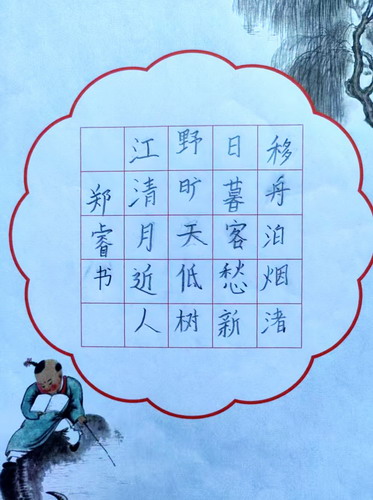 移舟泊烟渚
日暮客愁新
野旷天低树
江清月近人
郑睿书